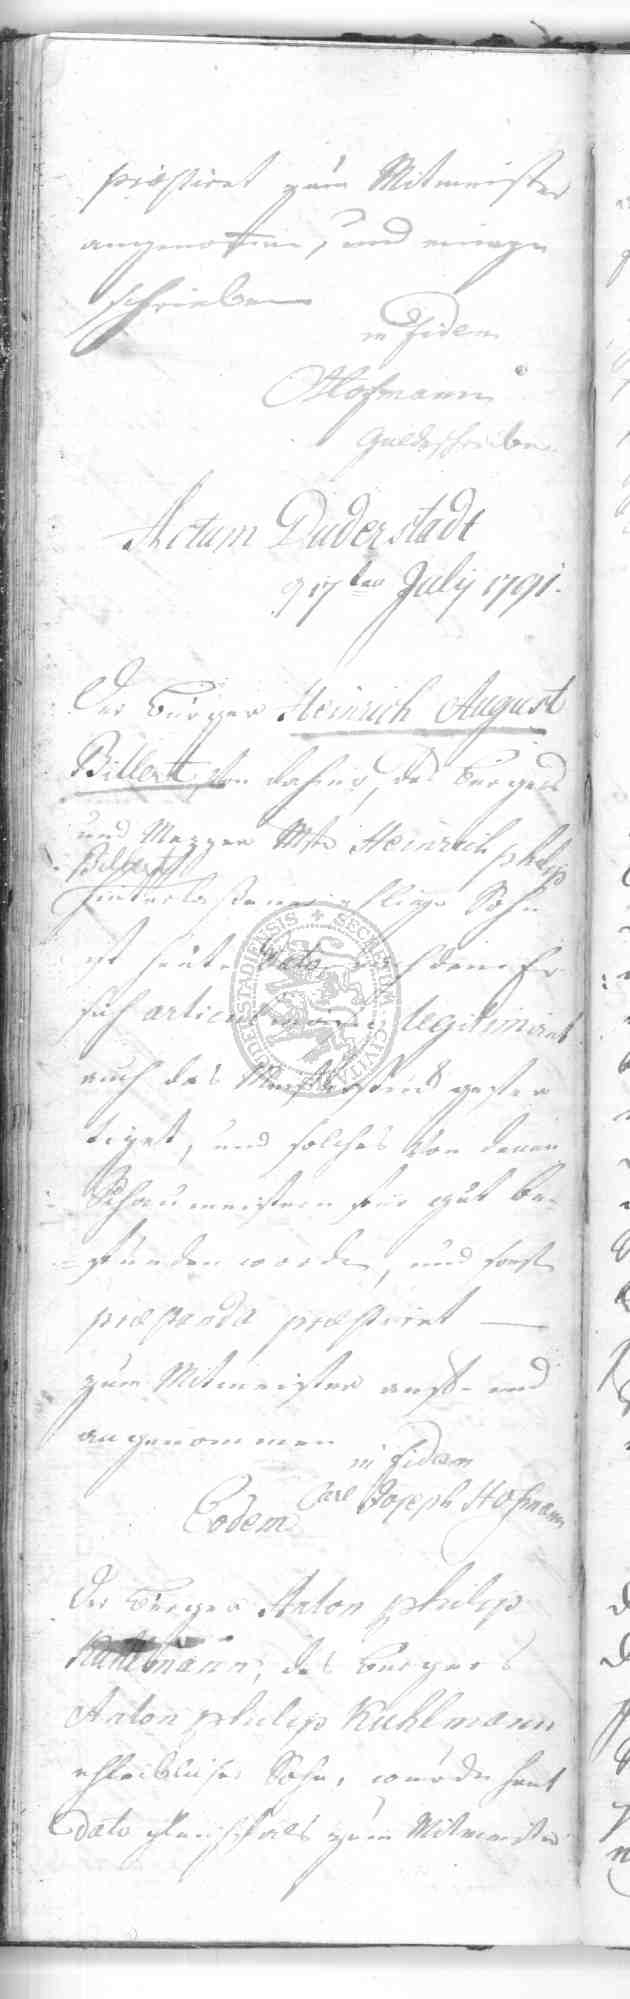 præstiret zum Mitmeister
angenommen, und einge
schrieben
in fidem
Hofmann
Guldeschreiber
Actum Duderstadt
d 17ten July 1791.
Der Bürger Heinrich August
Billert von dahier, des Bürgers
und Mstr Heinrich philip
Billerts
hinterlaßener Sohn
ist heute dato nachdeme Er
sich legitimiret
auch das Meisterstück gefer
tiget, und solches von denen
Schaumeistern für gut be-
funden worden, und sonst
præstanda præstiret —
zum Mitmeister auf- und
angenommen
in fidem
Carl Joseph Hofmann
Eodem
Der Bürger Anton philip
Kuhlmann, des Bürgers
Anton philip Kuhlmann
ehleiblicher Sohn, wurde heut
dato gleichfals zum Mitmeister
DUDERSTADIENSIS + SECRETUM CIVITATIS